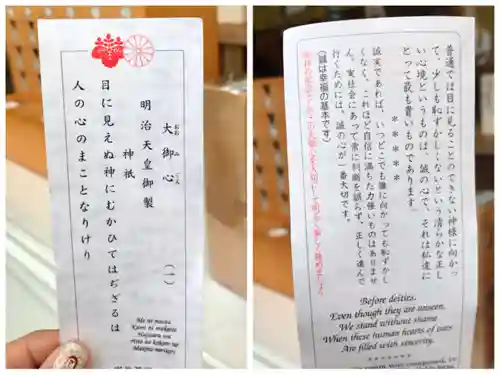 大御心
おおみごころ
明治天皇御製
(一)
神祇
目に見えぬ神にむかひてはぢざるは
人の心のまことなりけり
Me ni mienu
Kami ni mukaite
Hajizaru wa
Hito no kokoro no
Makoto narikeri
普通では目に見ることのできない神様に向かっ
て、少しも恥ずかしくないという清らかな正し
い心境というものは、誠の心で、それは私達に
とって最も貴いものであります。
*****
誠実であれば、いつどこでも誰に向かっても恥ずかし
くなく、これほど自信に満ちた力強いものはありませ
ん。実社会にあって常に判断を誤らず、正しく進んで
行くためには、誠の心が一番大切です。
(誠は幸福の基本です)
Before deities.
Even though they are unseen.
We stand without shame
When these human hearts of ours
Are filled with sincerity.
*******